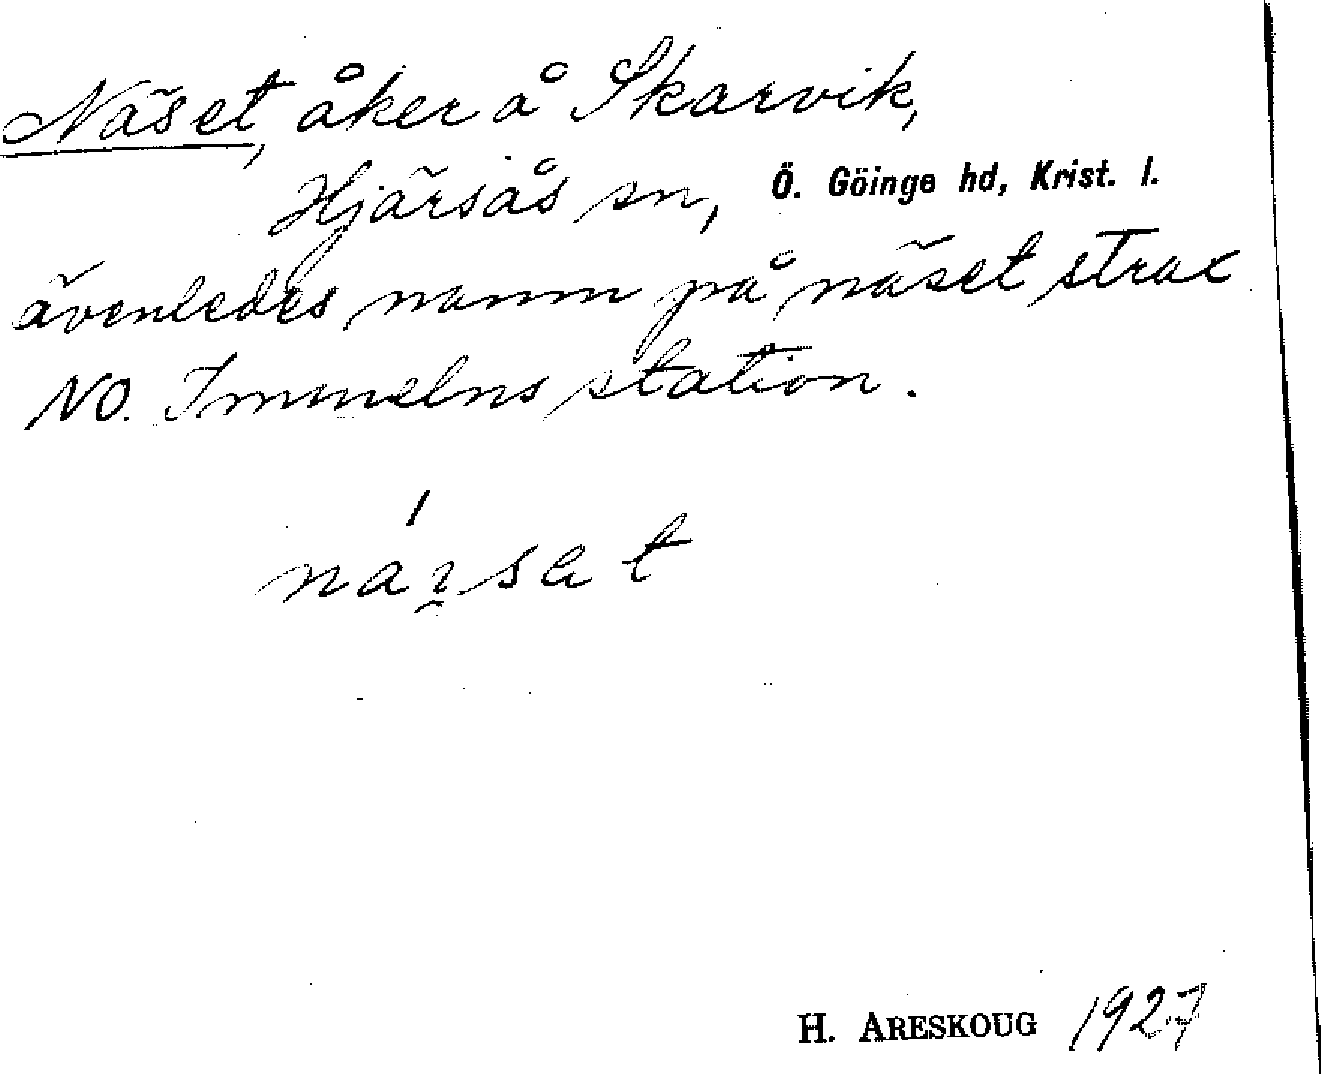 Näset, åker å Skarvik,
Hjärsås sn, Ö. Göinge hd, Krist. l.
ävenledes namn på näset strax
NO. Immelns station.
H. ARESKOUG 1927